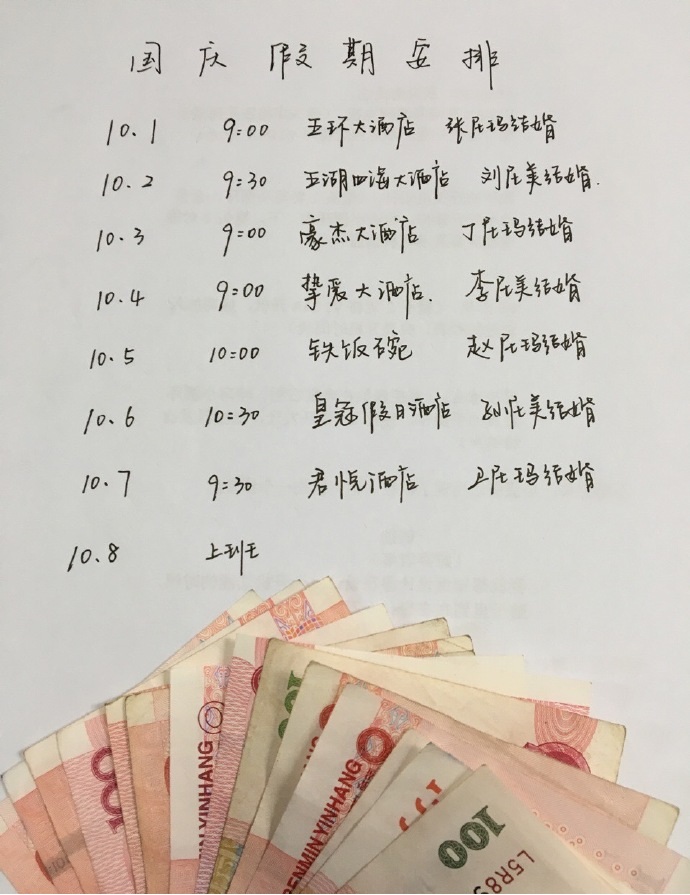 国庆假期安排
10.1 9:00 五环大酒店 张尼玛结婚
10.2 9:30 五湖四海大酒店 刘尼美结婚.
10.3 9:00 豪杰大酒店 丁尼玛结婚
10.4 9:00 挚爱大酒店. 李尼美结婚
10.5 10:00 铁饭碗 赵尼玛结婚
10.6 10:30 皇冠假日酒店 孙尼美结婚
10.7 9:30 君悦酒店 卫尼玛结婚
10.8 上班
YINHANG
RENMIN YINHANG
100
100
L5R89